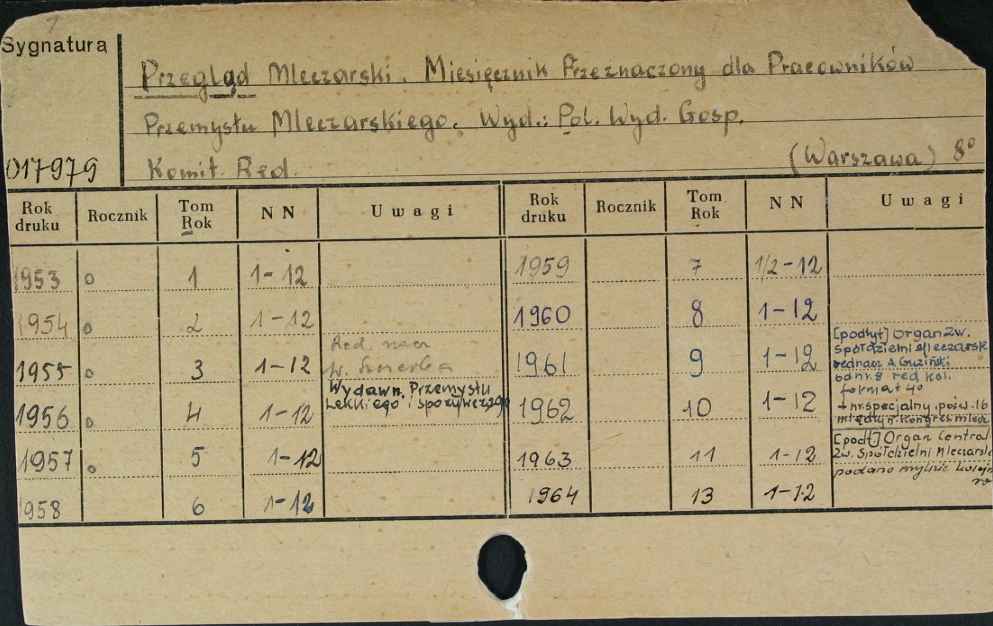 Sygnatura
Przegląd Mleczarski. Miesięcznik Przeznaczony dla Pracowników
Przemysłu Mleczarskiego. Wyd.: Pol. Wyd. Gosp.
017979 Komit. Red. (Warszawa) 8°
Rok druku Rocznik Tom Rok NN Uwagi Rok druku Rocznik Tom Rok NN Uwagi
1953 o 1 1-12 1959 7 1/2-12
1954 o 2 1-12 1960 8 1-12
Red. nacz
W.
1955 o 3 1-12 1961 9 1-12
[podtyt] Organ Zw.
Spółdzielni Mleczarsk
rednacz A Guziński
od nr. 8 red kol.
format 4°
Wydawn. Przemysłu
Lekkiego i spożywczego
1956 o 4 1-12 1962 10 1-12
+ nr. specjalny pośw. 16
międzyn. kongres mlecz
1957 o 5 1-12 1963 11 1-12
[podt] Organ Central
Zw. Spółdzielni Mleczarsk
1958 6 1-12 1964 13 1-12
podano mylnie kolejn
nr